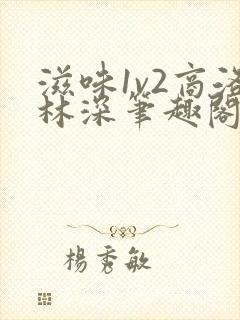 滋味1v2高洛
林深笔趣閣
楊秀敏